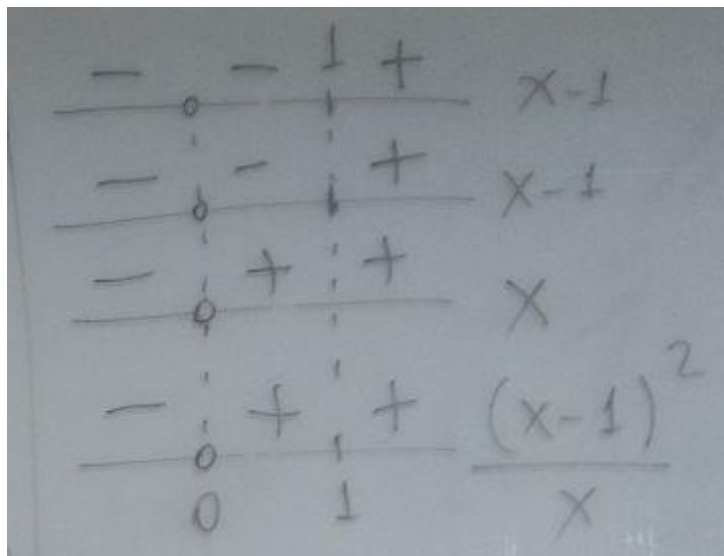 - - 1 + x-1
- - + x-1
- + + x
- + + (x-1)²
0 1 x